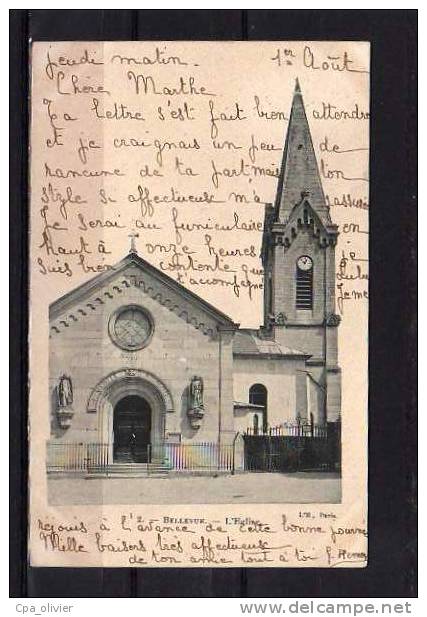 jeudi matin. 1er Août
Chère Marthe
Ta lettre s'est fait bien attendre
et je craignais un peu de
rancune de ta part mais ton
style si affectueux m'a rassurée
Je serai au funiculaire en
haut à onze heures je
suis bien contente que
t'accompagne Je me
2. - BELLEVUE. - L'Eglise
réjouis à l'avance de cette bonne journée
Mille baisers très affectueux
de ton amie tout à toi
Cpa_olivier
http://www.delcampe.net